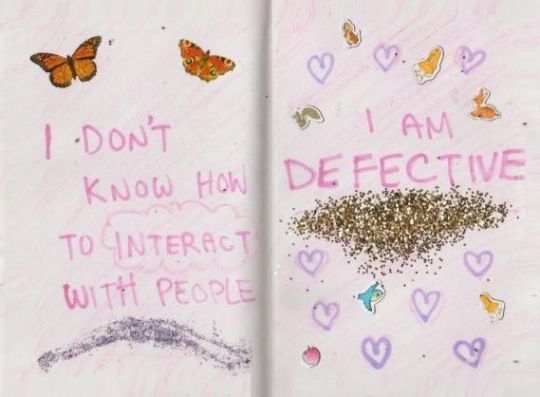 I DON'T
KNOW HOW
TO INTERACT
WITH PEOPLE
I AM
DEFECTIVE